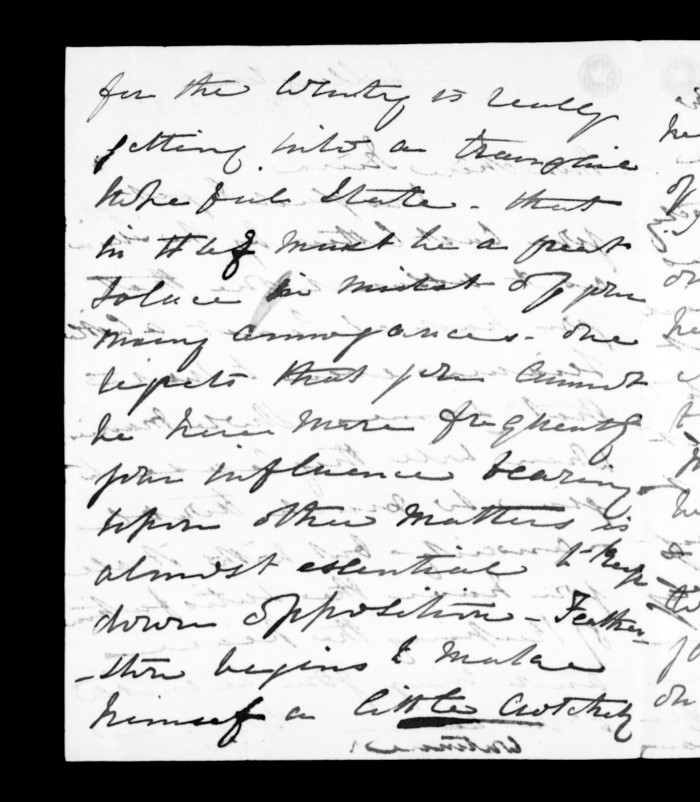 for the County is really
getting into a tranquil
hopeful State - that
in itself must be a great
Solace in midst of your
many annoyances - One
regrets that you cannot
be here more frequently
your influence bearing
upon other matters is
almost essential to keep
down opposition - Feather-
-ston begins to make
himself a little crotchety